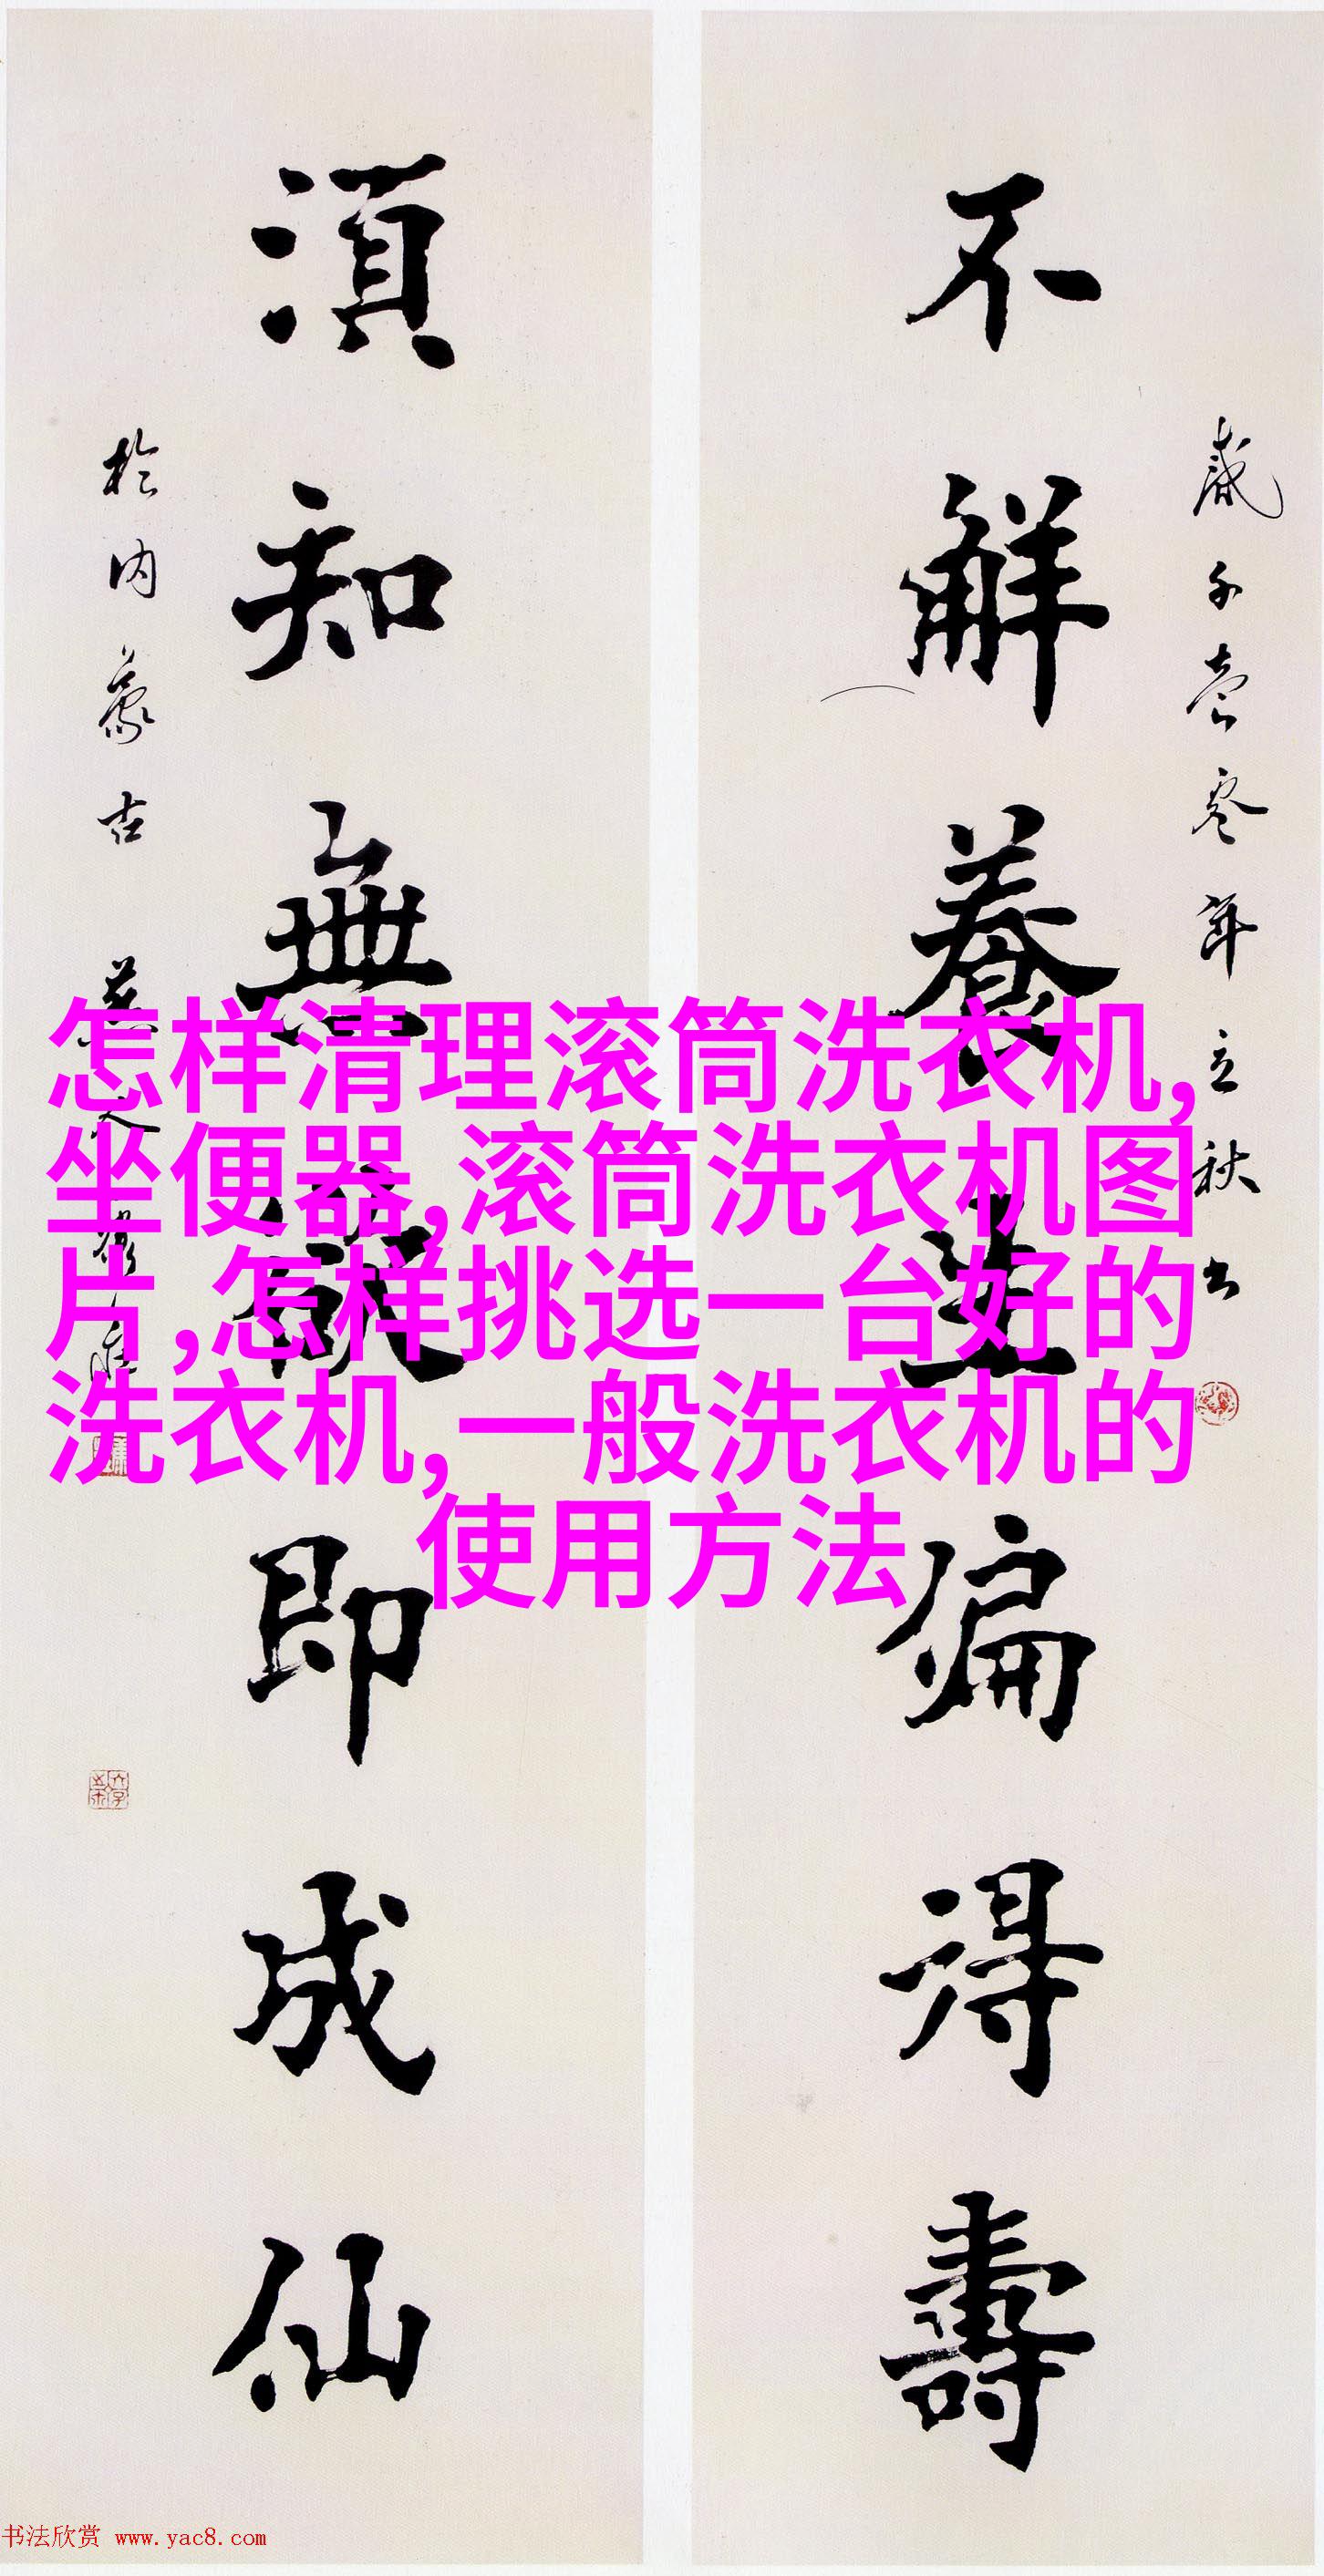 不解養生偏得壽
須知無欲即成仙
怎样清理滚筒洗衣机,
坐便器,滚筒洗衣机图
片,怎样挑选一台好的
洗衣机,一般洗衣机的
使用方法
书法欣赏 www.yac8.com